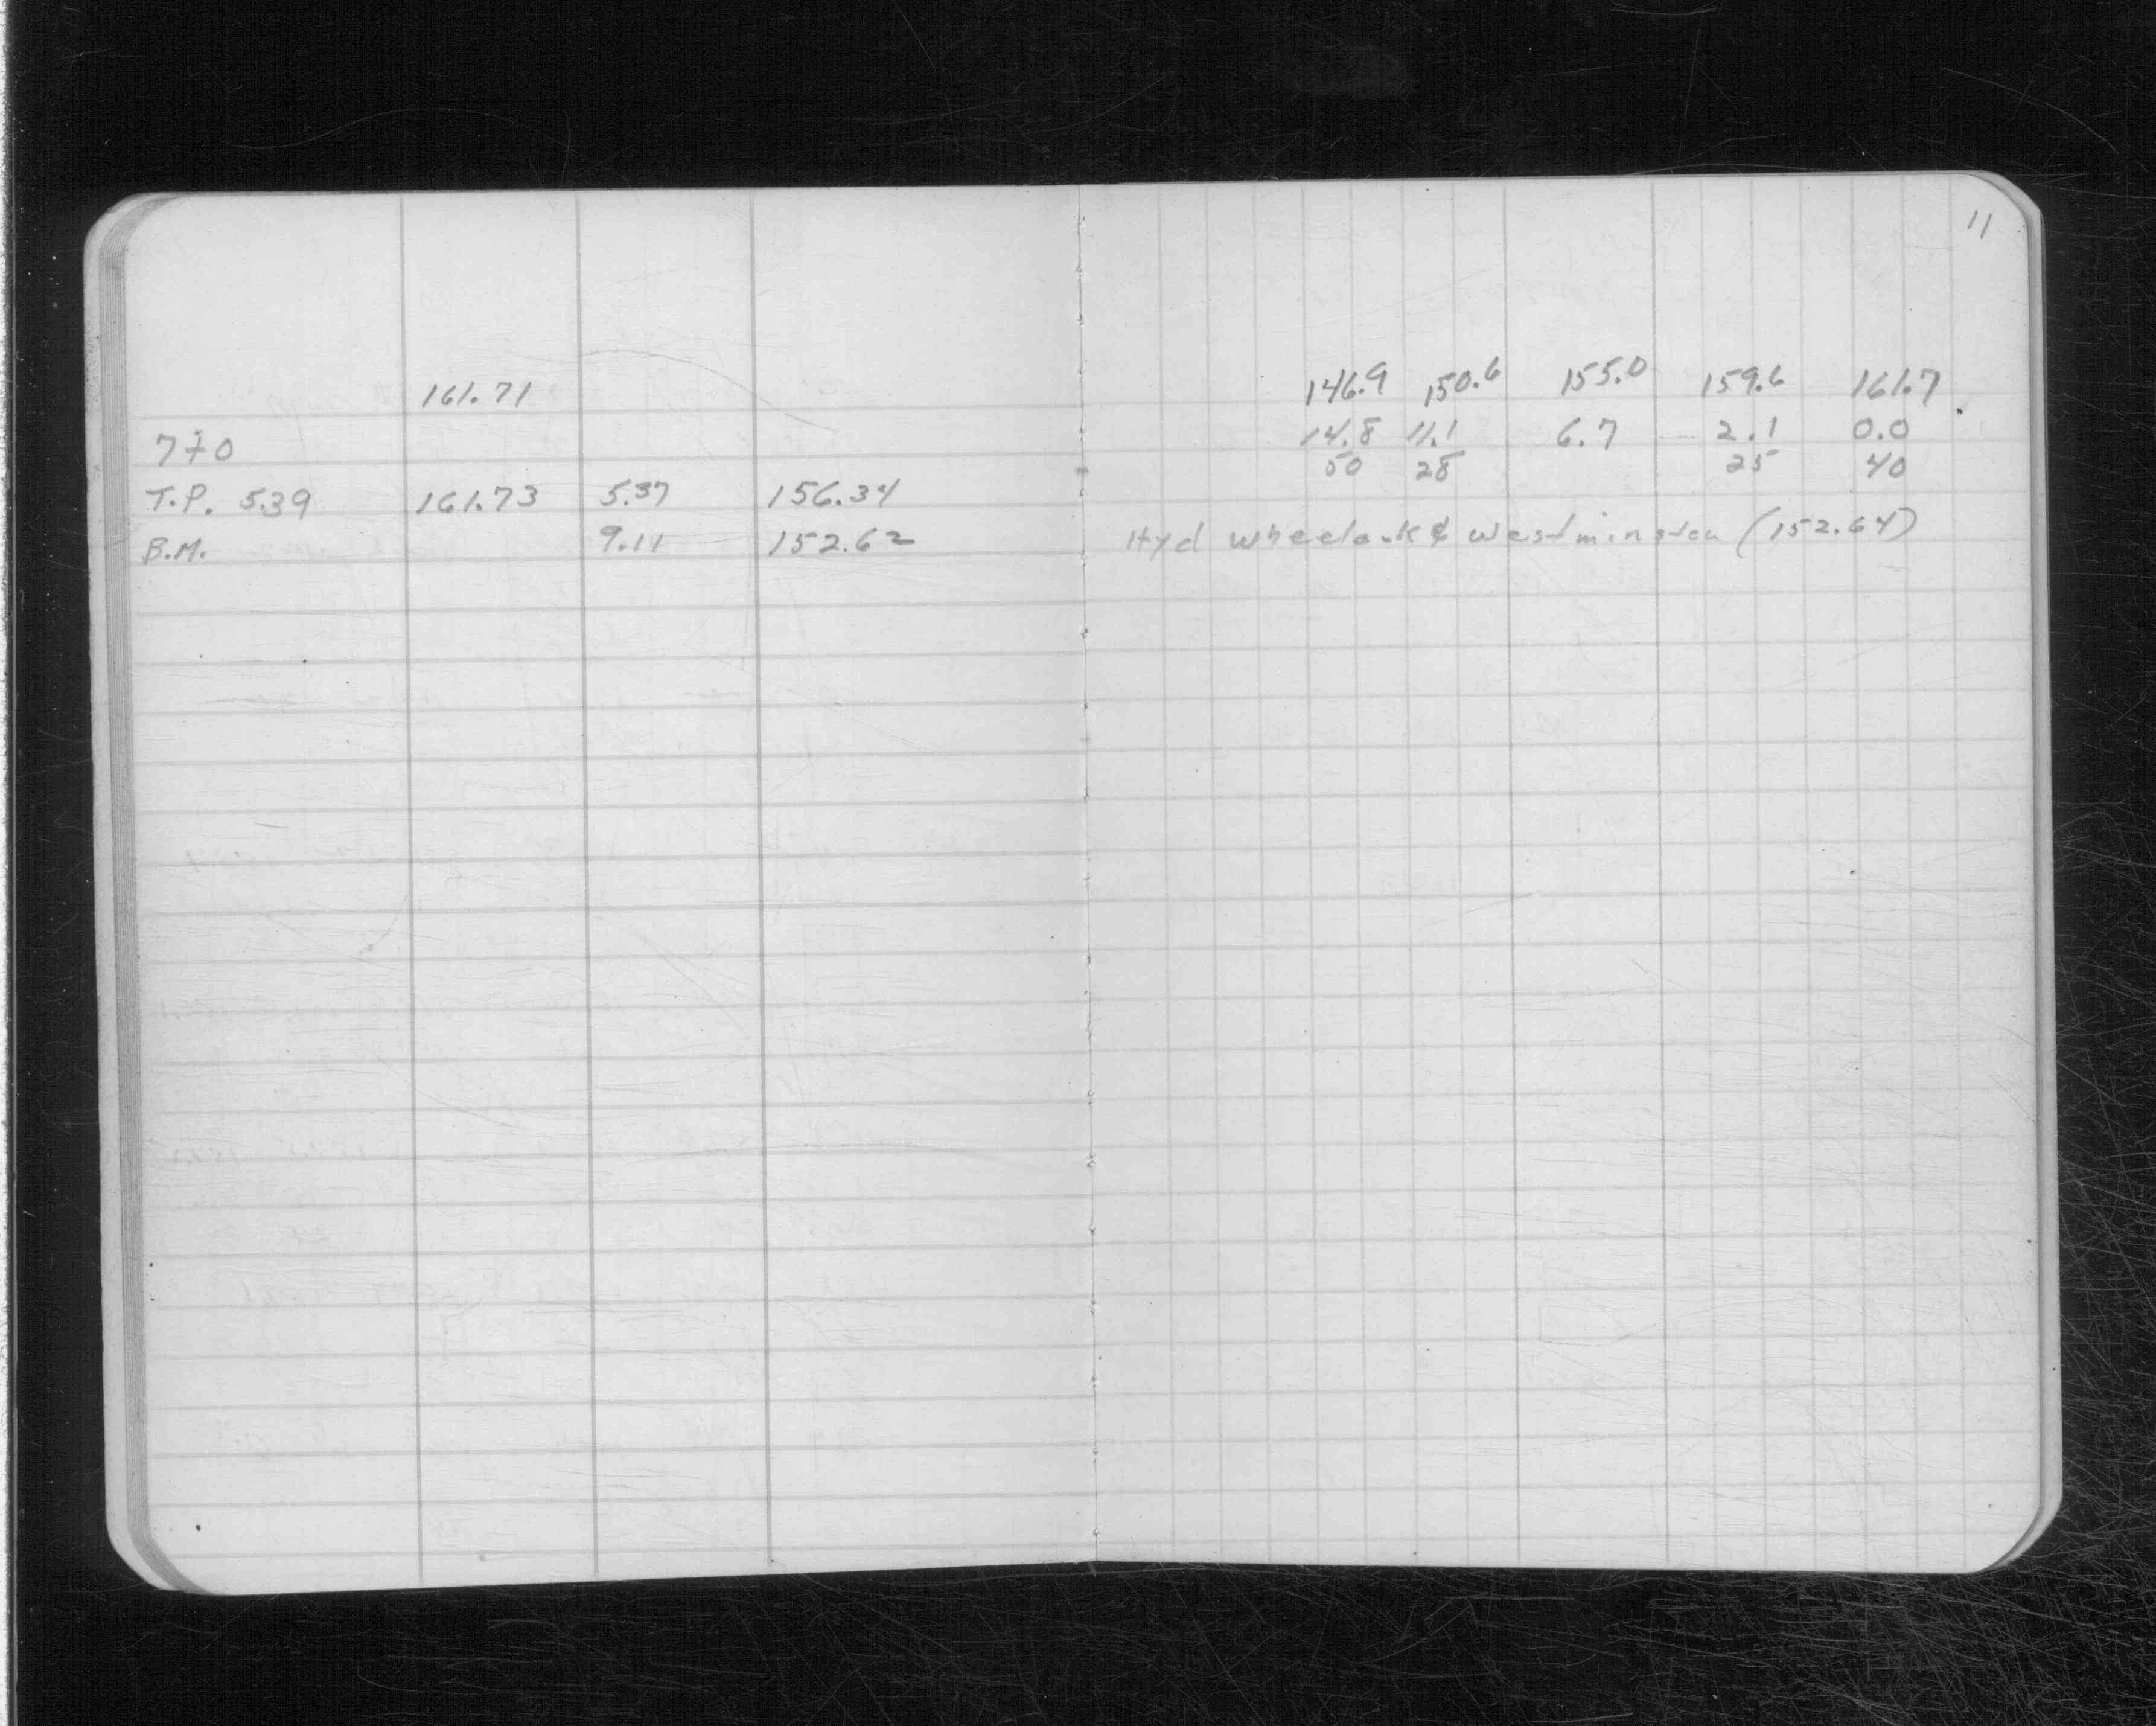 11
161.71
146.9 150.6 155.0 159.6 161.7
7+0
14.8 11.1 6.7 2.1 0.0
50 28 25 40
T.P. 5.39 161.73 5.37 156.34
B.M. 9.11 152.62 Hyd Wheelock & Westminster (152.64)